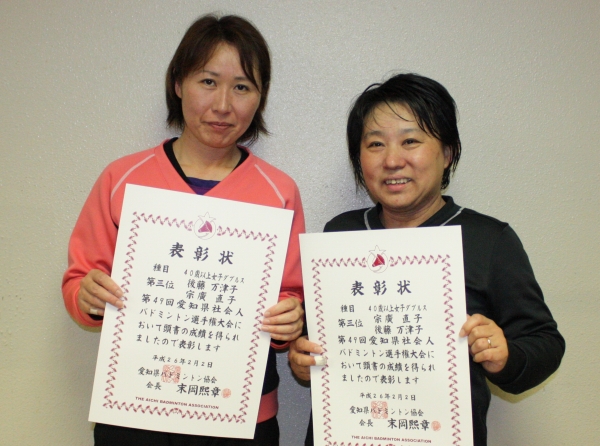 表彰状
種目 40歳以上女子ダブルス
第三位 後藤 万津子
宗廣 直子
第49回愛知県社会人
バドミントン選手権大会に
おいて頭書の成績を得られ
ましたので表彰します
平成26年2月2日
愛知県バドミントン協会
会長 末岡熙章
THE AICHI BADMINTON ASSOCIATION
表彰状
種目 40歳以上女子ダブルス
宗廣 直子
第三位 後藤 万津子
第49回愛知県社会人
バドミントン選手権大会に
おいて頭書の成績を得られ
ましたので表彰します
平成26年2月2日
愛知県バドミントン協会
会長 末岡熙章
THE AICHI BADMINTON ASSOCIATION